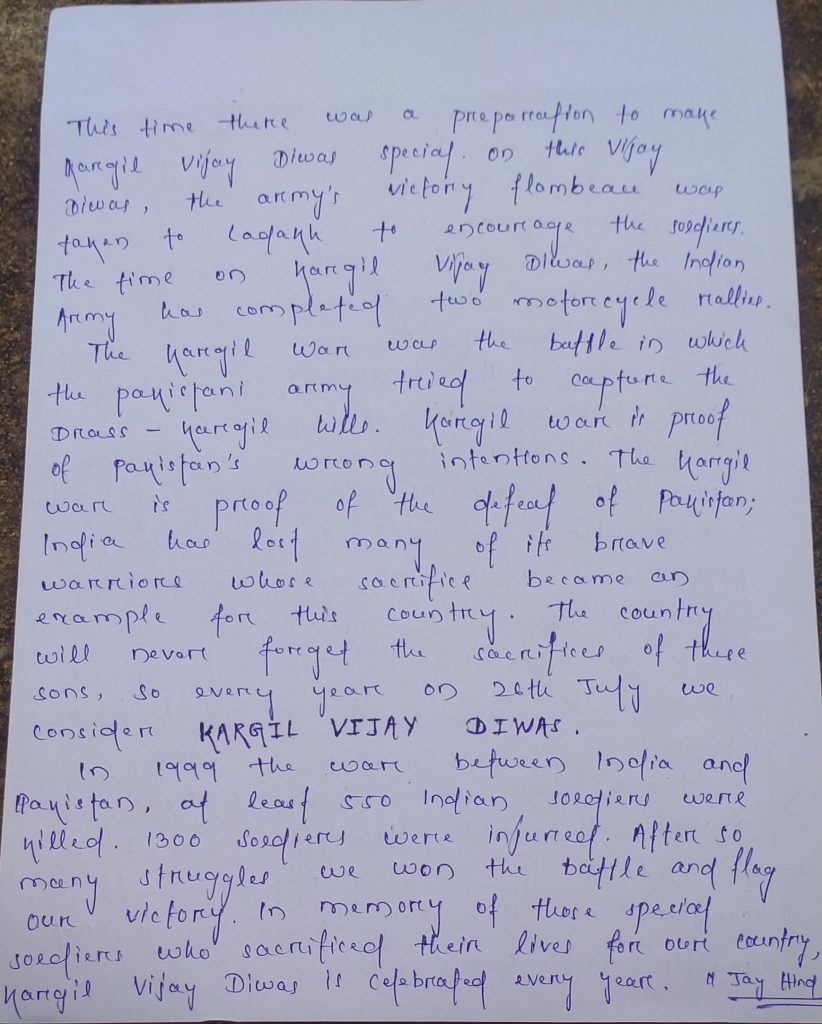 This time there was a preparation to make
Kargil Vijay Diwas special. on this Vijay
Diwas, the army's victory flambeau was
taken to Ladakh to encourage the soldiers.
The time on Kargil Vijay Diwas, the Indian
Army has completed two motorcycle rallies.
The Kargil war was the battle in which
the pakistani army tried to capture the
Drass - Kargil hills. Kargil war is proof
of pakistan's wrong intentions. The Kargil
war is proof of the defeat of Pakistan;
India has lost many of its brave
warriors whose sacrifice became an
example for this country. The country
will never forget the sacrifices of these
sons, so every year on 26th July we
consider KARGIL VIJAY DIWAS.
In 1999 the war between India and
Pakistan, at least 550 Indian soldiers were
killed. 1300 soldiers were injured. After so
many struggles we won the battle and flag
our victory. In memory of those special
soldiers who sacrificed their lives for our country,
Kargil Vijay Diwas is celebrated every year. " Jay Hind